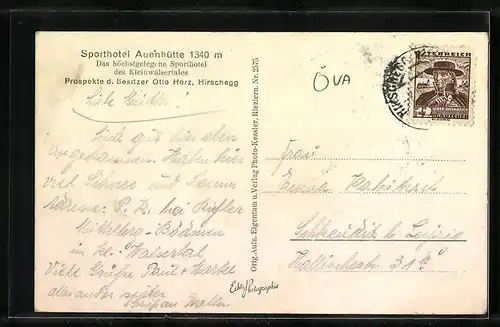 Sporthotel Auenhütte 1340 m
Das höchstgelegene Sporthotel
des Kleinwalsertales
Prospekte d. Besitzer Otto Herz, Hirschegg
ÖVA
ÖSTERREICH
HIRSCHEGG
Liebe Mutter!
Sind gut hier oben
angekommen. Haben hier
viel Schnee und Sonne
Adresse: P. K. bei
Mittelberg-Bödmen
im kl. Walsertal
Viele Grüße Paul +
alles andere später
Gruß an
Orig.-Aufn. Eigentum u. Verlag Photo-Kessler, Riezlern. Nr. 2575
Echte Photographie
Frau
Schkeuditz b. Leipzig
Hallischestr. 31